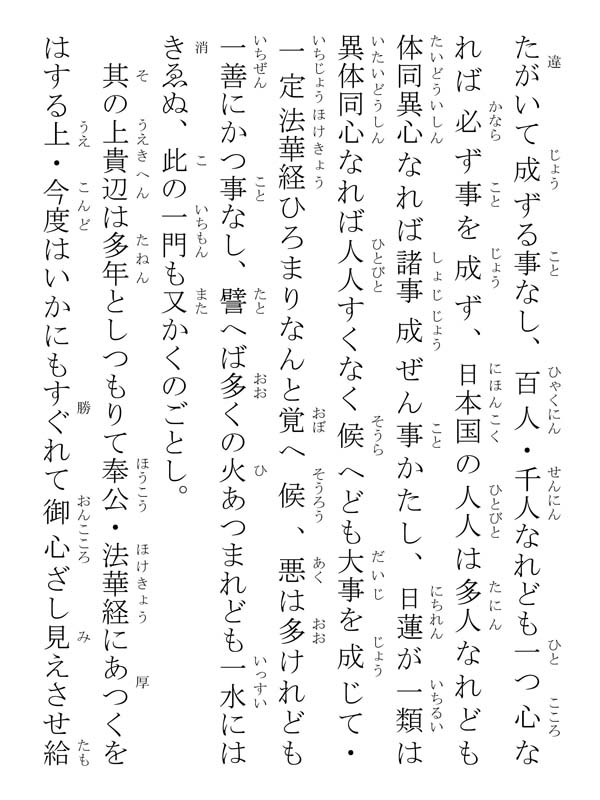 たがいて成ずる事なし、百人・千人なれども一つ心な
れば必ず事を成ず、日本国の人人は多人なれども
体同異心なれば諸事成ぜん事かたし、日蓮が一類は
異体同心なれば人人すくなく候へども大事を成じて・
一定法華経ひろまりなんと覚へ候、悪は多けれども
一善にかつ事なし、譬へば多くの火あつまれども一水には
きゑぬ、此の一門も又かくのごとし。
其の上貴辺は多年としつもりて奉公・法華経にあつくを
はする上・今度はいかにもすぐれて御心ざし見えさせ給